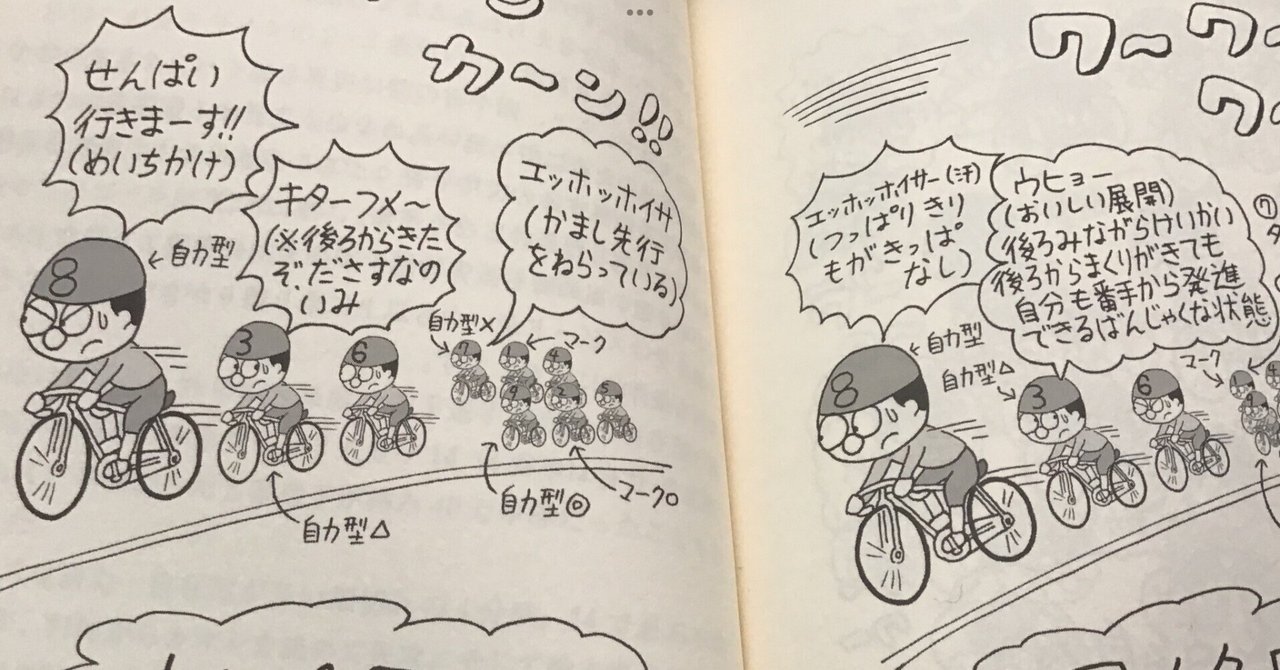 カーン!!
せんぱい
行きまーす!!
(めいちかけ)
キターフメ〜
(※後ろからきた
ぞ、ださすなの
いみ
エッホッホイサ
(かまし先行
をねらっている)
8
←自力型
3
6
自力型×
マーク
7
4
9
5
自力型△
自力型◎
マーク○
ワーワー
ワ
エッホッホイサー(汗)
(つっぱりきり
もがきっぱ
なし)
ウヒョー
(おいしい展開)
後ろみながらけいかい
後ろからまくりがきても
自分も番手から発進
できるばんじゃくな状態
⑦
タ
8
←自力型
自力型△
3
6
マーク
4